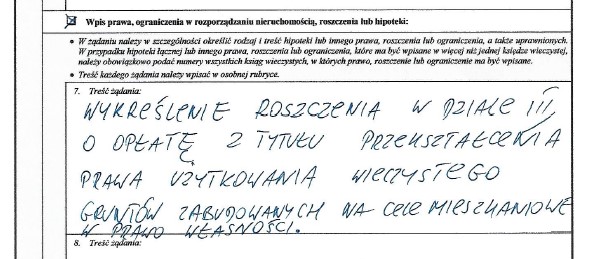 Wpis prawa, ograniczenia w rozporządzaniu nieruchomością, roszczenia lub hipoteki:
• W żądaniu należy w szczególności określić rodzaj i treść hipoteki lub innego prawa, roszczenia lub ograniczenia, a także uprawnionych.
W przypadku hipoteki łącznej lub innego prawa, roszczenia lub ograniczenia, które ma być wpisane w więcej niż jednej księdze wieczystej,
należy obowiązkowo podać numery wszystkich ksiąg wieczystych, w których prawo, roszczenie lub ograniczenie ma być wpisane.
• Treść każdego żądania należy wpisać w osobnej rubryce.
7. Treść żądania:
WYKREŚLENIE ROSZCZENIA W DZIALE III,
O OPŁATĘ Z TYTUŁU PRZEKSZTAŁCENIA
PRAWA UŻYTKOWANIA WIECZYSTEGO
GRUNTÓW ZABUDOWANYCH NA CELE MIESZKANIOWE
W PRAWO WŁASNOŚCI.
8. Treść żądania: